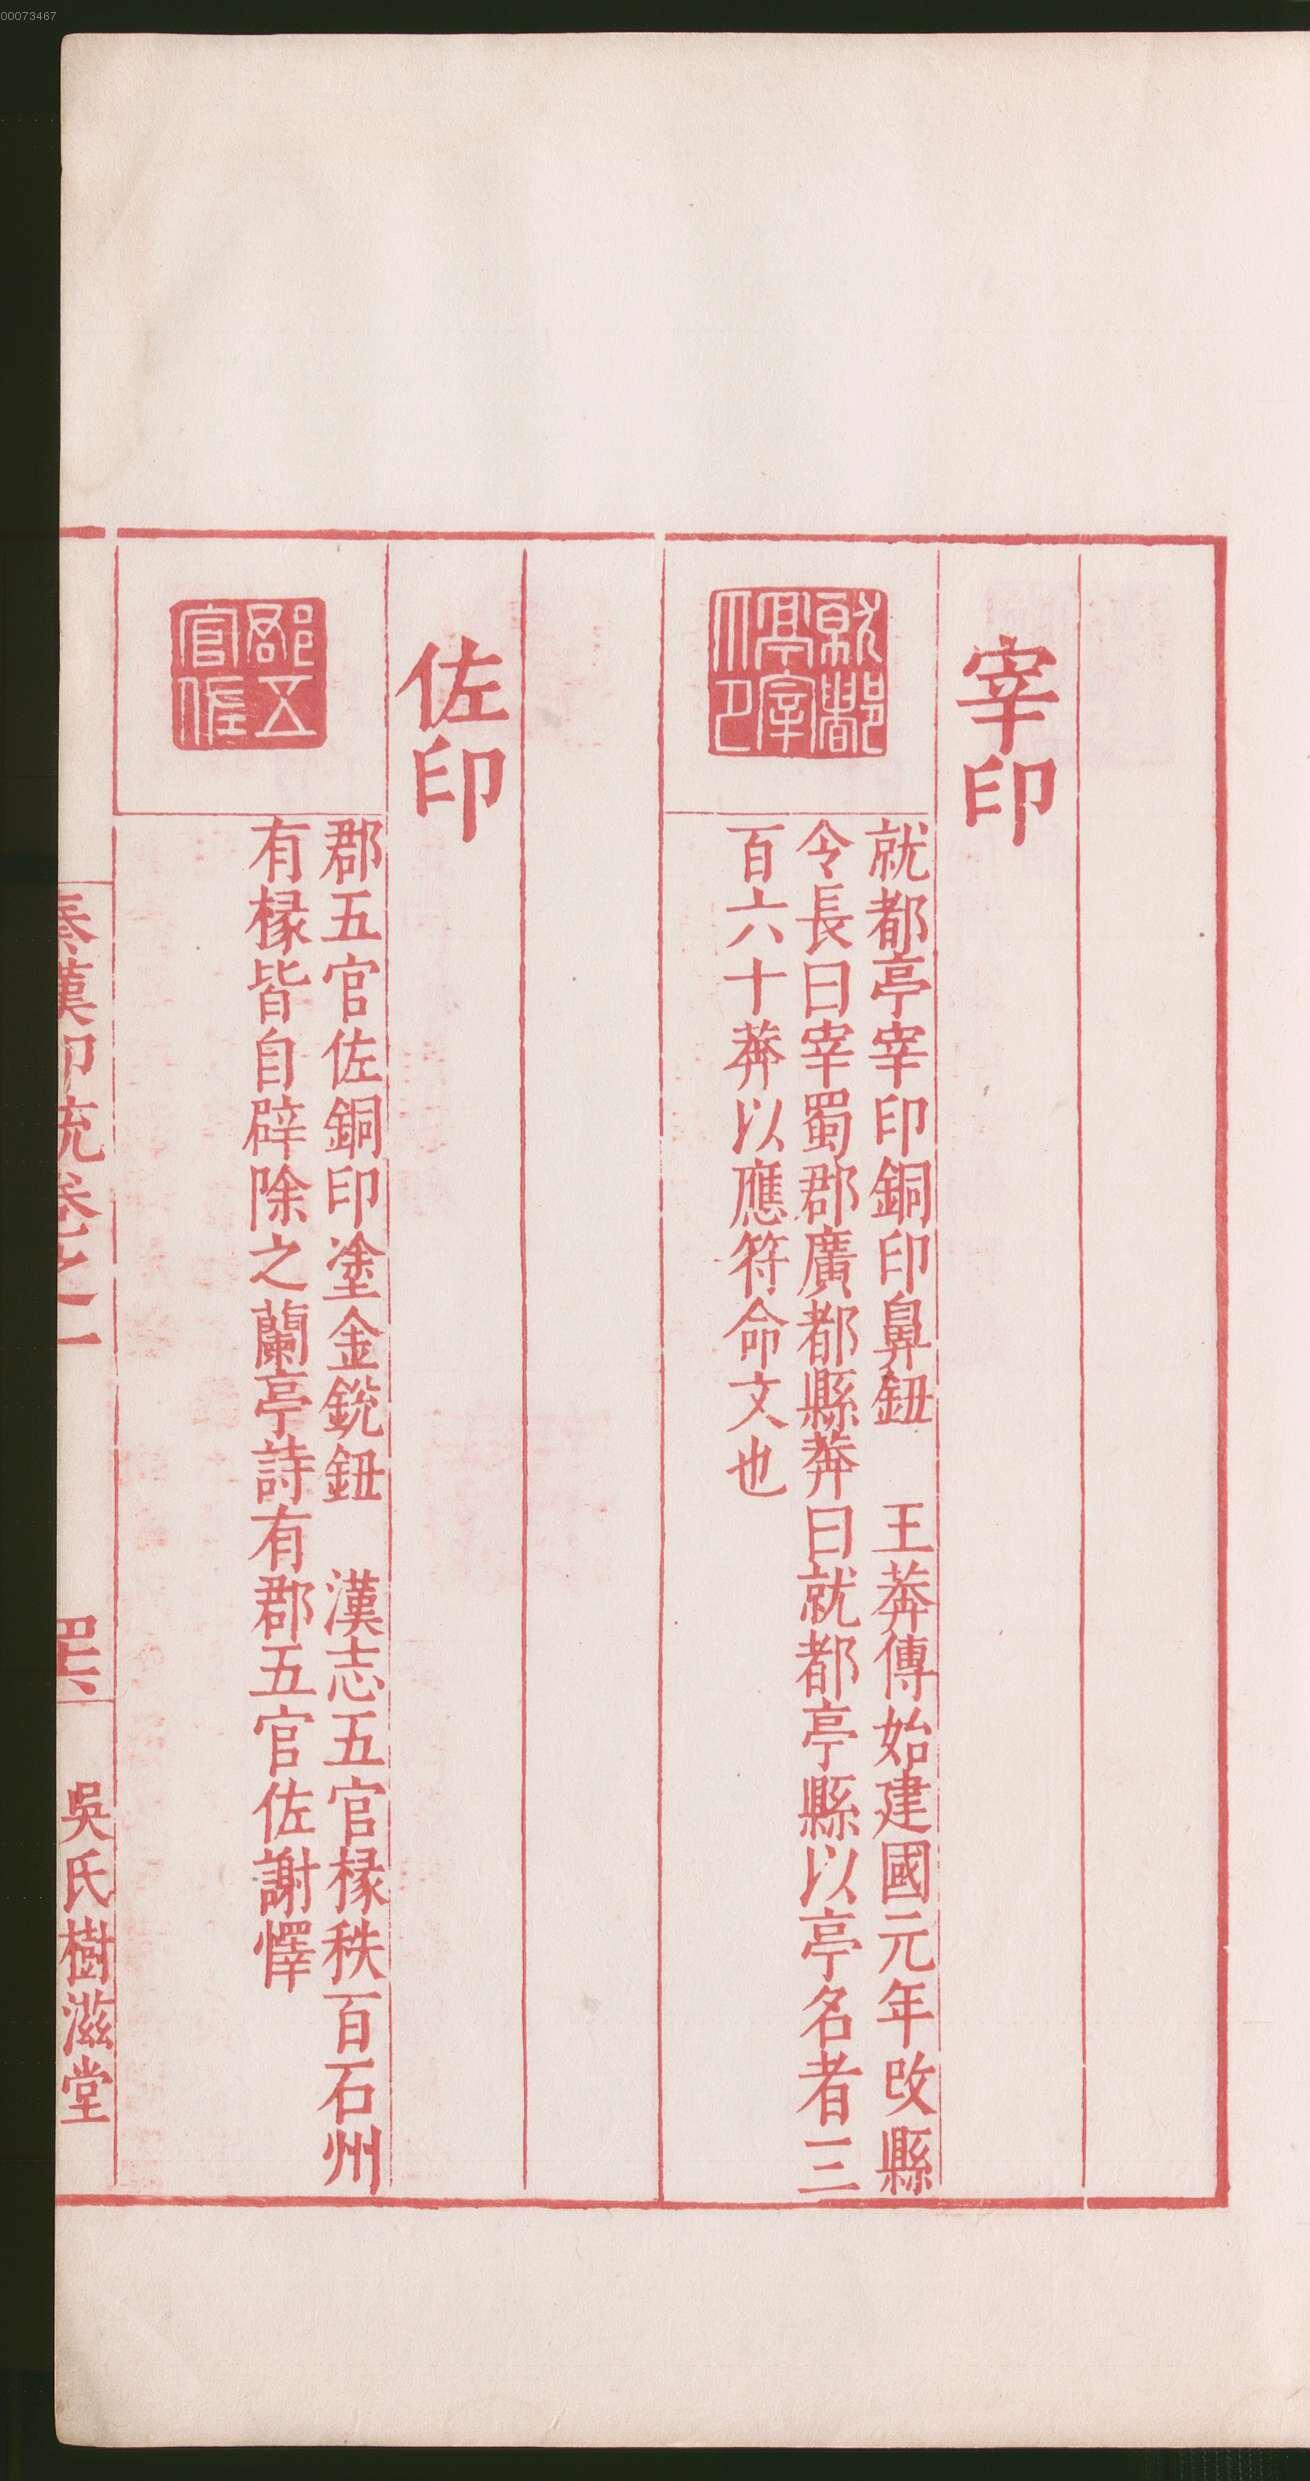 宰印
就都亭宰之印
就都亭宰印銅印鼻鈕　王莽傳始建國元年改縣
令長曰宰蜀郡廣都縣莽曰就都亭縣以亭名者三
百六十莽以應符命文也
佐印
郡五官佐
郡五官佐銅印塗金銳鈕　漢志五官椽秩百石州
有椽皆自辟除之蘭亭詩有郡五官佐謝懌
秦漢印統卷之一
吳氏樹滋堂
00073467